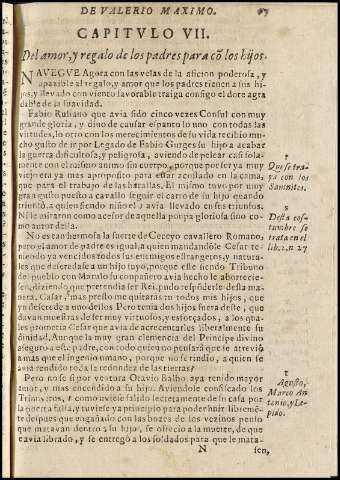 DE VALERIO MAXIMO. 97
CAPITVLO VII.
Del amor, y regalo de los padres para cõ los hijos.
NAVEGVE Agora con las velas de la aficion poderosa, y
apazible al regalo, y amor que los padres tienen a sus hi-
jos, y llevado con viento favorable traiga consigo el dote agra
dable de la suavidad.
Fabio Ruliano que avia sido cinco vezes Consul con muy
grande gloria, y dino de causar espanto lo uno con todas las
virtudes, lo otro con los merecimientos de su vida recibio mu-
cho gusto de ir por Legado de Fabio Gurges su hijo a acabar
la guerra dificultosa, y peligrosa, aviendo de pelear cõ sola-
mente con el mismo animo sin cuerpo, porque por ser ya muy
viejo era ya mas aproposito para estar acostado en la cama,
que para el trabajo de las batallas. El mismo tuvo por muy
gran gusto puesto a cavallo seguir el carro de su hijo quando
triunfó, a quien siendo niño el avia llevado en sus triunfos.
Ni le miraron como acesor de aquella pompa gloriosa sino co-
mo autor della.
No es tan hermosa la suerte de Ceceyo cavallero Romano,
pero el amor de padre es igual, a quien mandandole Cesar te-
niendo ya vencidos todos sus enemigos estrangeros, y natura-
les que deseredase a un hijo suyo, porque este siendo Tribuno
del pueblo con Marulo su compañero avia hecho le aborrecie-
sen, diziendo que pretendia ser Rei, pudo respõderle desta ma
nera. Cesar, mas presto me quitaras tu todos mis hijos, que
yo deserede a uno dellos. Pero tenia dos hijos fuera deste, que
davan muestras de ser muy virtuosos, y esforçados, a los qua-
les prometia Cesar que avia de acrecentarles liberalmente su
dinidad. Aunque la muy gran clemencia del Principe divino
asseguro a este padre, con todo quien no pensará que se atrevio
a mas que el ingenio umano, porque no se rindio, a quien se
avia rendido toda la redondez de las tierras?
Pero no se si por ventura Otavio Balbo aya tenido mayor
amor, y mas encendido a su hijo. Aviendole condenado los
Triunviros, como uviese salido secretamente de su casa por
la puerta falsa, y tuviese ya principio para poder huir libreme-
te despues que engañado con las bozes de los vezinos penso
que matavan dentro a su hijo, se ofrecio a la muerte, de que
se avia librado, y se entregó a los soldados para que le mata-
N sen,
r
Que se tra-
ta con los
Samnites.
s
Desta cos-
tumbre se
trata en el
lib. 2. n 27
t
Agusto,
Marco An
tonio, y Le-
pido.